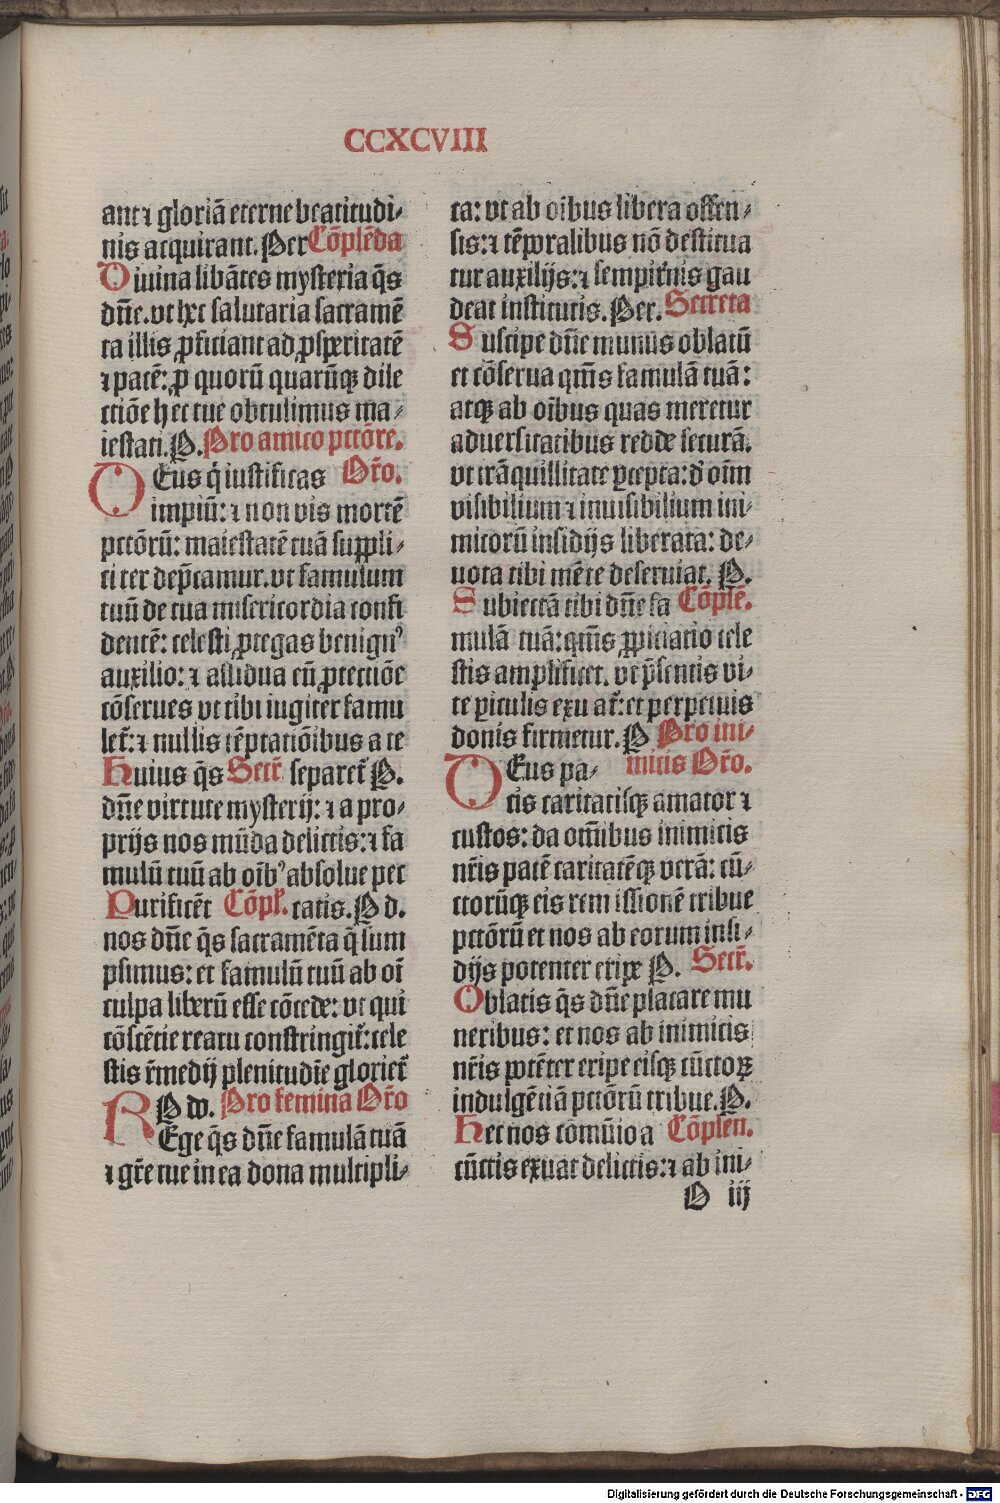 CCXCVIII
ant ⁊ gloriā eterne beatitudi⸗
nis acquirant. Per Cōplēda
Diuina libātes mysteria q̄s
dn̄e. vt hec salutaria sacramē
ta illis ꝓficiant ad ꝓsperitatē
⁊ pacē: ꝓ quorū quarūqꝫ dile
ctiōe hec tue obtulimus ma⸗
iestati. P. Pro amico pctōre.
DEus q̇ iustificas Or̄o.
impiū: ⁊ non vis mortē
pctōrū: maiestatē tuā suppli⸗
citer dep̄camur. vt famulum
tuū de tua misericordia confi
dentē: celesti ꝓtegas benignꝰ
auxilio: ⁊ assidua eū ꝓtectiōe
cōserues vt tibi iugiter famu
let̄: ⁊ nullis tēptatiōibus a te
Huius q̄s Secr̄ separet̄ P.
dn̄e virtute mysterij: ⁊ a pro⸗
prijs nos mūda delictis: ⁊ fa
mulū tuū ab oībꝰ absolue pec
Purificēt Cōpl̄. catis. P d.
nos dn̄e q̄s sacramēta q̄ sum
psimus: et famulū tuū ab oī
culpa liberū esse cōcede: vt qui
cōscētie reatu constringit̄: cele
stis r̄medij plenitudīe gloriet̄
P dd. Pro femina Or̄o
REge q̄s dn̄e famulā tuā
⁊ gr̄e tue in ea dona multipli⸗
ca: vt ab oībus libera offen⸗
sis: ⁊ tēporalibus nō destitua
tur auxilijs: ⁊ sempit̄nis gau
deat institutis. Per. Secreta
Suscipe dn̄e munus oblatū
et cōserua qm̄s famulā tuā:
atqꝫ ab oībus quas meretur
aduersitatibus redde securā.
vt trāquillitate ꝑcepta: d̄ oīm
visibilium ⁊ inuisibilium ini⸗
micorū insidijs liberata: de⸗
uota tibi mēte deseruiat. P.
Subiectā tibi dn̄e fa Cōplē.
mulā tuā: qm̄s ꝓpiciatio cele
stis amplificet. vt p̄sentis vi⸗
te ꝑiculis exuat̄: et perpetuis
donis firmetur. P Pro ini⸗
DEus pa⸗ micis Or̄o.
cis caritatisqꝫ amator ⁊
custos: da om̄ibus inimicis
nr̄is pacē caritatēqꝫ verā: cū⸗
ctorūqꝫ eis remissionē tribue
pctōrū et nos ab eorum insi⸗
dijs potenter eripe P. Secr̄.
Oblatis q̄s dn̄e placare mu
neribus: et nos ab inimicis
nr̄is potēter eripe eisqꝫ cūctoꝝ
indulgētiā pctōrū tribue. P.
Hec nos comūio a Cōplen.
cūctis exuat delictis: ⁊ ab ini⸗
O iij
Digitalisierung gefördert durch die Deutsche Forschungsgemeinschaft - DFG